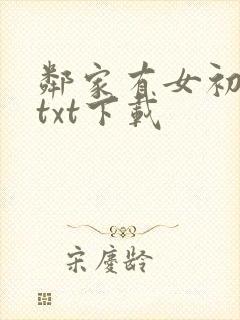 鄰家有女初
txt下載
宋慶齡